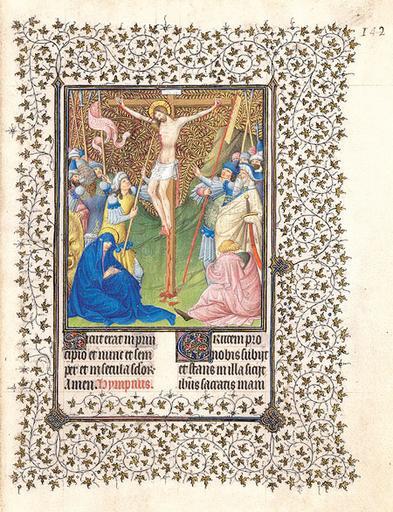 142
Sicut erat in prin
cipio et nunc et sem
per et in secula seclor
Amen. Hympnus.
CRucem pro
nobis subijt
et stans in illa sicijt
ihus sacratis mani